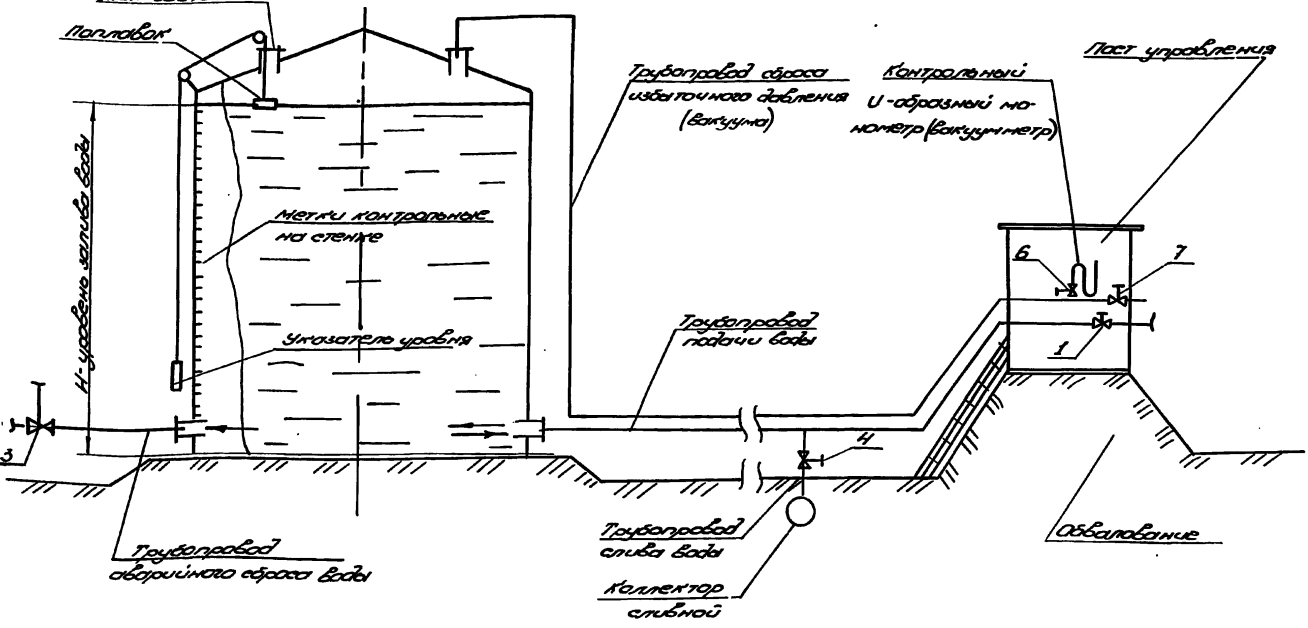 Поплавок
Трубопровод сброса
избыточного давления
(вакуума)
Контрольный
U-образный ма-
нометр (вакуумметр)
Пост управления
Н-уровень залива воды
Метки контрольные
на стенке
6
7
Указатель уровня
Трубопровод
подачи воды
1
3
4
Трубопровод
аварийного сброса воды
Трубопровод
слива воды
Обвалование
Коллектор
сливной